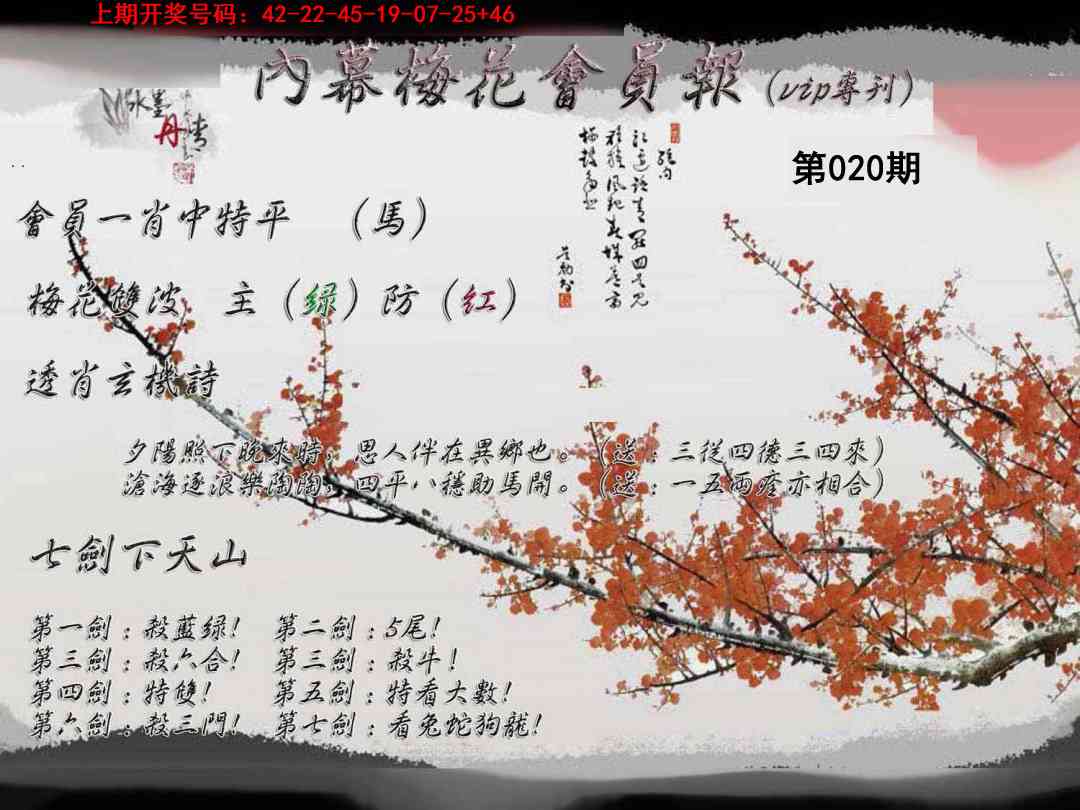 上期开奖号码：42-22-45-19-07-25+46
內幕梅花會員報（vip專刊）
水墨
丹青
第020期
會員一肖中特平 （馬）
梅花雙波 主（绿）防（红）
透肖玄機詩
夕陽照下晚來時，思人伴在異鄉也。（送：三從四德三四來）
滄海逐浪樂陶陶，四平八穩助馬開。（送：一五兩疼亦相合）
七劍下天山
第一劍：殺藍绿！ 第二劍：5尾！
第三劍：殺六合！ 第三劍：殺牛！
第四劍：特雙！ 第五劍：特看大數！
第六劍：殺三門！ 第七劍：看兔蛇狗龍！